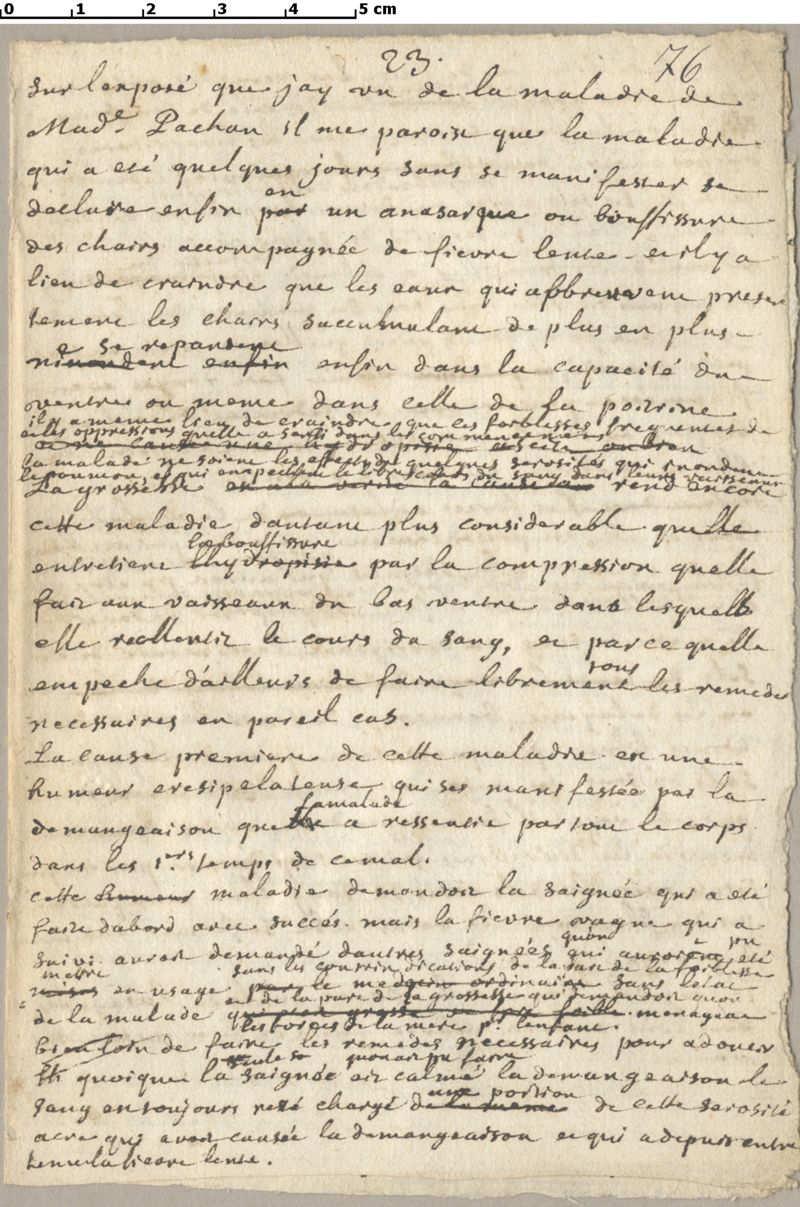 0 1 2 3 4 5 cm
23. 76
Sur lexposé que jay vu de la maladie de
Mad.e Pachan il me paroist que la maladie
qui a eté quelques jours sans se manifester se
declare enfin par en un anasarque ou bouffissure
des chairs accompagnée de fievre lente. et il y a
lieu de craindre que les eaux qui abbreuvent presen
tement les chairs saccumulant de plus en plus
e se repandent
enfin enfin dans la capacité du
ventre ou meme dans celle de la poitrine
il y a meme lieu de craindre que les foiblesses frequentes de
et les oppressions quelle a senti dans les commencemens
la malade ne soient les effets de quelques serosités qui inondent
le poumon, et qui empechent le cours du sang dans leurs vaisseaux
La grossesse rend encore
cette maladie dautant plus considerable quelle
la bouffissure
entretient lhydropisie par la compression quelle
fait aux vaisseaux du bas ventre dans lesquels
elle rallentit le cours du sang, et parce quelle
tous
empeche d'ailleurs de faire librement les remedes
necessaires en pareil cas.
La cause premiere de cette maladie est une
humeur eresipelateuse qui ses manifestée par la
la malade
demangeaison que a ressentie par tout le corps
dans les 1.ers temps de ce mal.
cette humeur maladie demandoit la saignée qui a eté
faite dabord avec succés. mais la fievre vague qui a
suivi auroit demandé dautres saignées qui auroient eté
quon a pu
mettre sans les contrindications de la part de la foiblesse
mises en usage par le medecin ordinaire sans letat
et de la part de la grossesse qui demandoit quon
de la malade qui est grosse menageat
les forces de la mere p.r lenfant.
bien loin de faire les remedes necessaires pour adoucir
seule quon ait pu faire
quoique la saignée ait calmé la demangeaison le
une portion
sang est toujours resté chargé de la meme de cette serosité
acre qui avoit causée la demangeaison et qui a depuis entre
tenue la fievre lente.